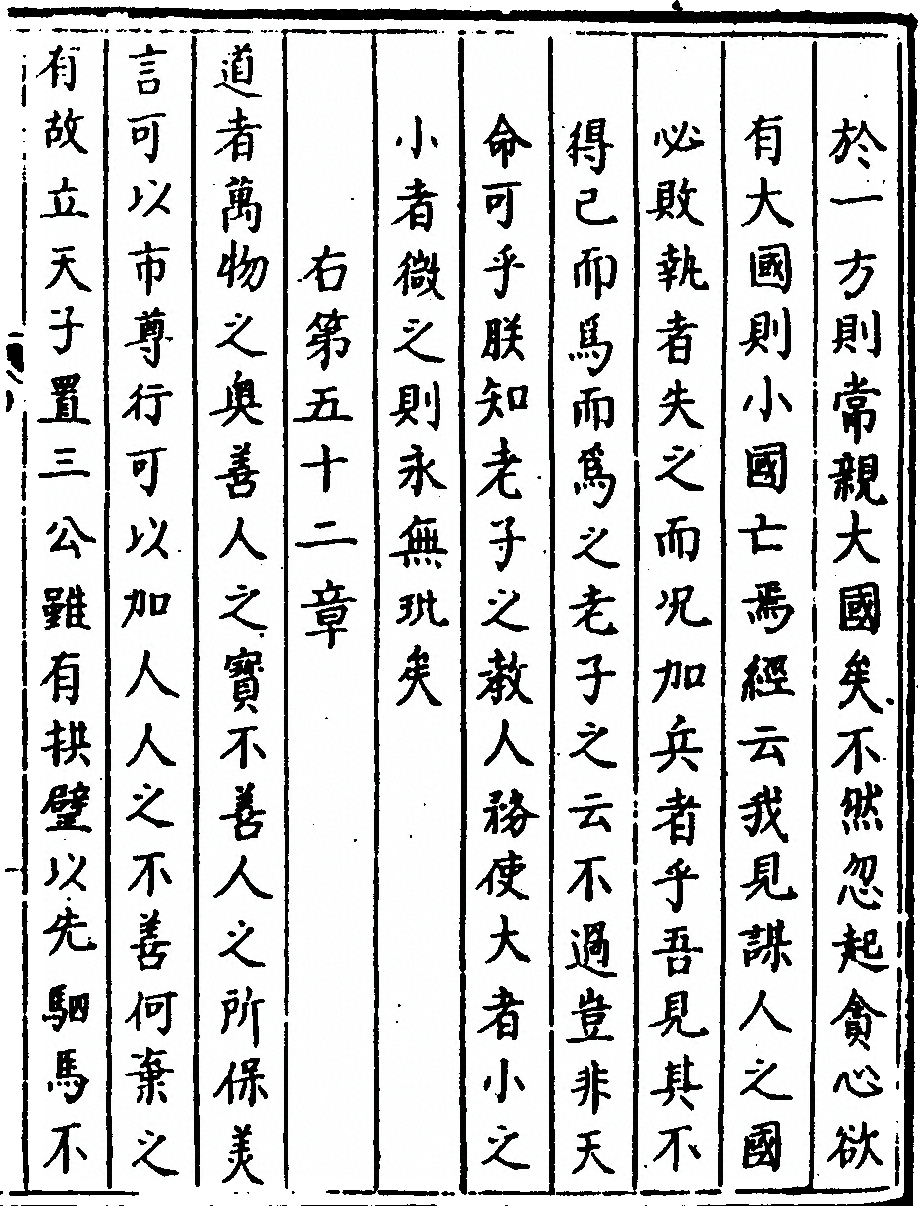 於一方則常親大國矣不然忽起貪心欲
有大國則小國亡焉經云我見謀人之國
必敗執者失之而况加兵者乎吾見其不
得已而爲而爲之老子之云不過豈非天
命可乎朕知老子之教人務使大者小之
小者微之則永無玭矣
右第五十二章
道者萬物之奥善人之寳不善人之所保美
言可以市尊行可以加人人之不善何棄之
有故立天子置三公雖有拱璧以先駟馬不